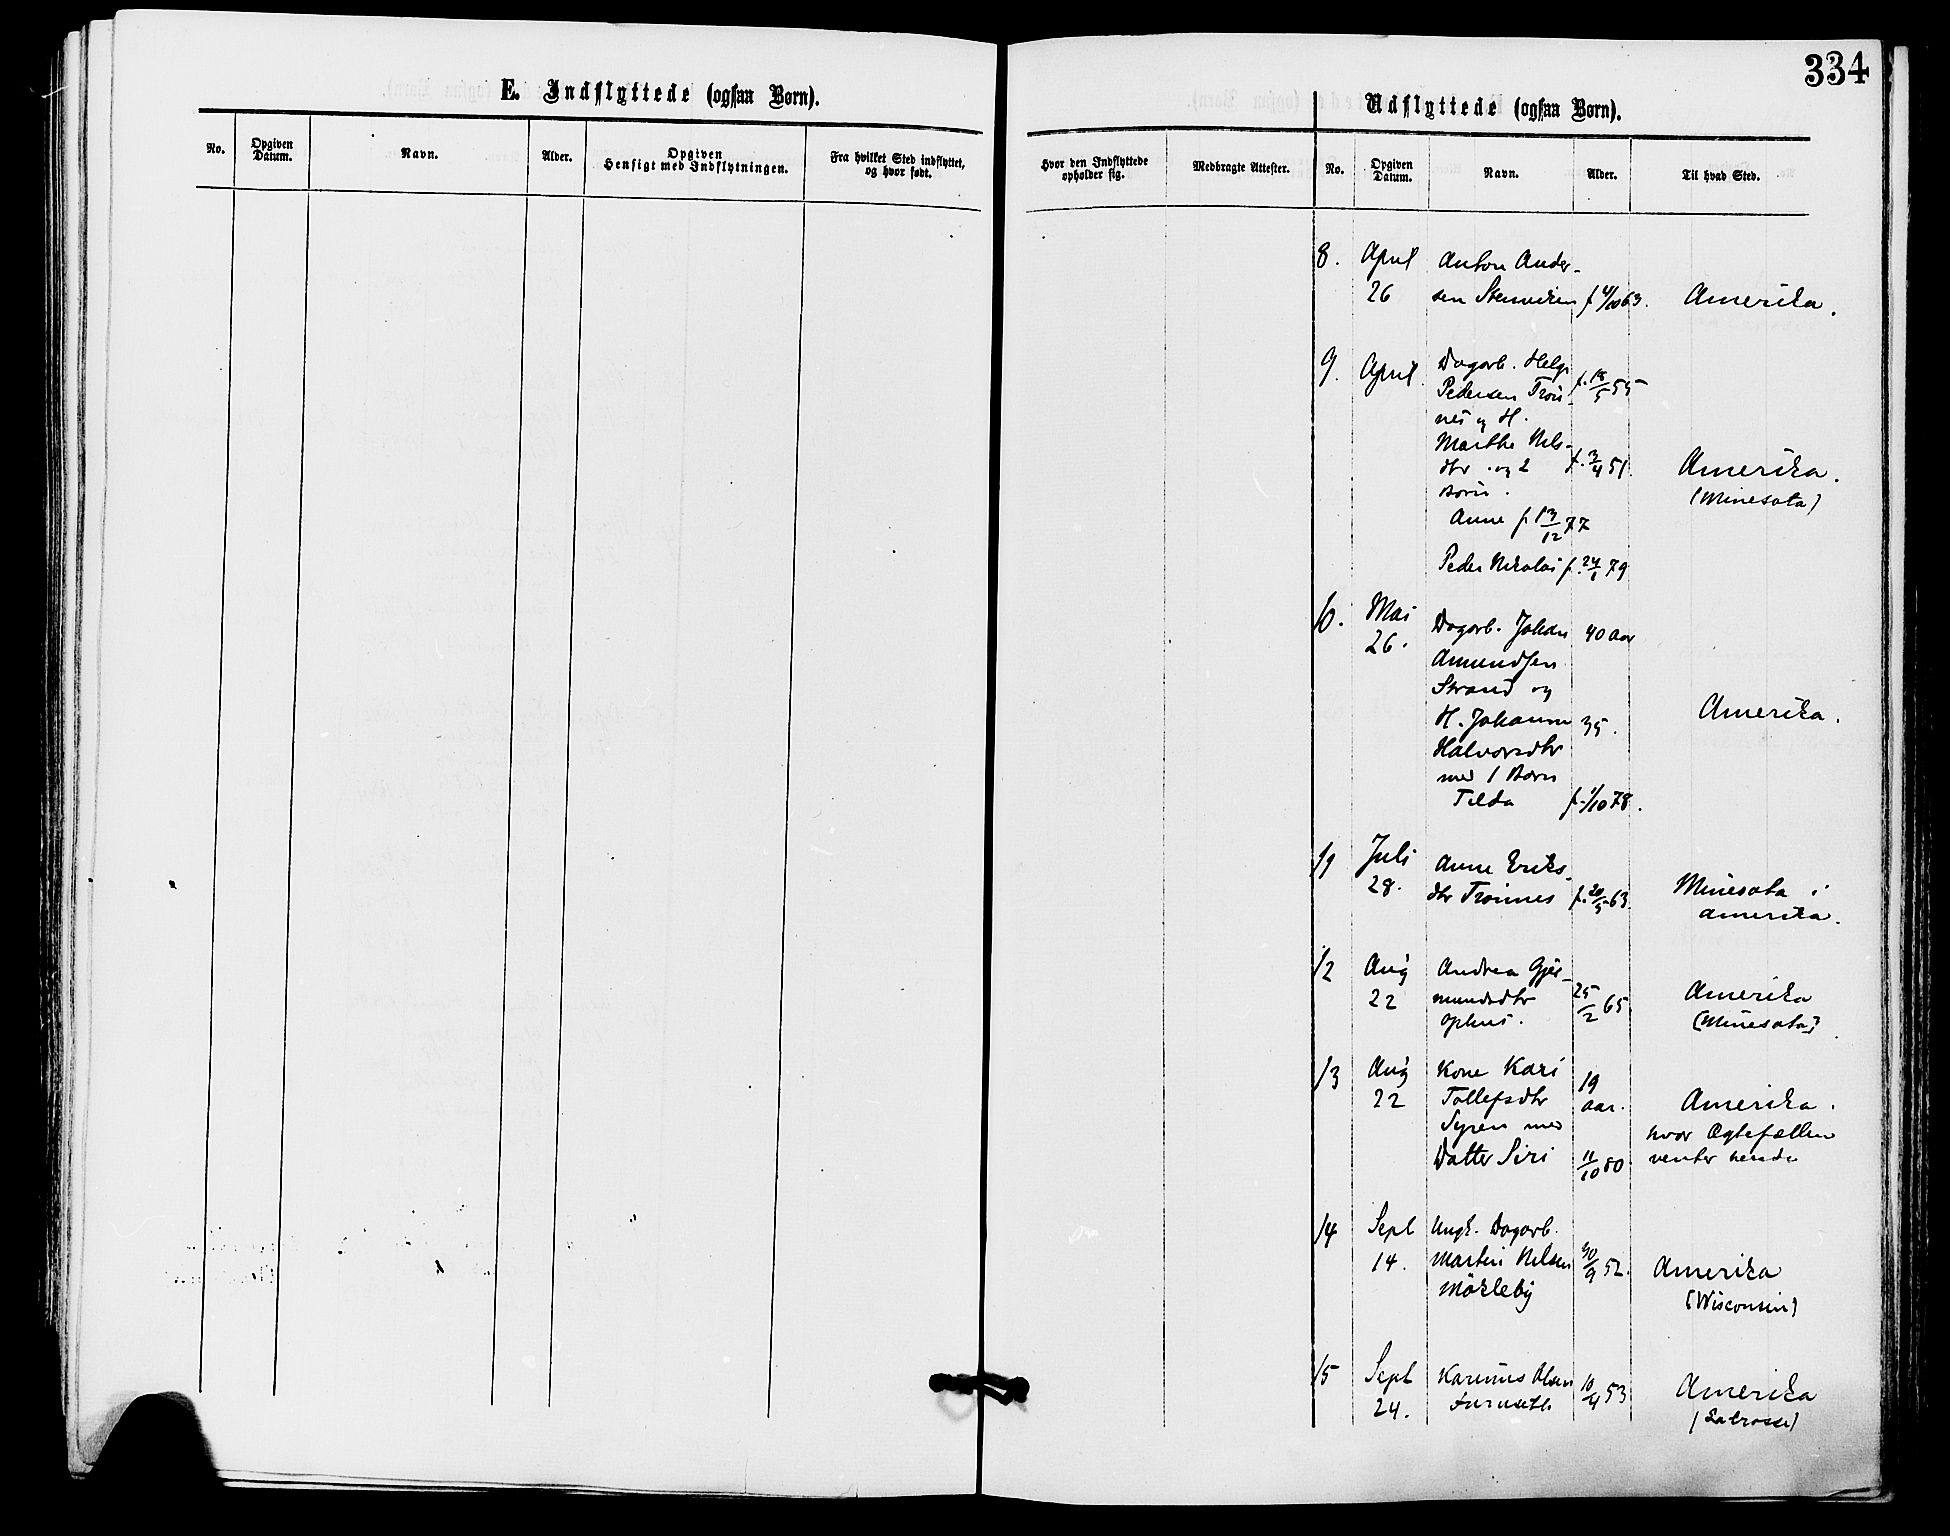 334
E. Indflyttede (ogsaa Børn).
No.
Opgiven Datum.
Navn.
Alder.
Opgiven Hensigt med Indflytningen.
Fra hvilket Sted indflyttet, og hvor født.
Udflyttede (ogsaa Børn).
Hvor den Indflyttede opholder sig.
Medbragte Attester.
No.
Opgiven Datum.
Navn.
Alder.
Til hvad Sted.
8. April Anton Ander-
26 sen Stenviken f 4/10 63. Amerika.
9. April. Dagarb. Helge
Pedersen Trøn- f. 18/5 55
nes og H.
Marthe Nils-
dtr. og 2 f. 3/4 51. Amerika.
Børn. (Minesota)
Anne f 13/12 77
Peder Nikolai f. 24/1 79
10. Mai Dagarb. Johan 40 aar
26. Amundsen
Strand og
H. Johanne 35. Amerika.
Halvorsdtr
med 1 Barn
Tilda f. 1/10 78.
11 Juli Anne Eriks-
28. dtr Trønnes f. 20/5 63. Minesota i
Amerika.
12 Aug Andrea Gjer-
22 mundsdtr 25/2 65. Amerika
Ophus. (Minesota)
13 Aug Kone Kari 19
22 Tollefsdtr aar. Amerika.
Syren med hvor Ægtefællen
Datter Siri 11/10 80. venter hende
14 Sept Ungk. Dagarb.
14. Martin Nilsen 30/9 52. Amerika
Mökleby (Wisconsin)
15 Sept Karinus Olsen 10/4 53 Amerika
24. Furuseth (Lacrosse)